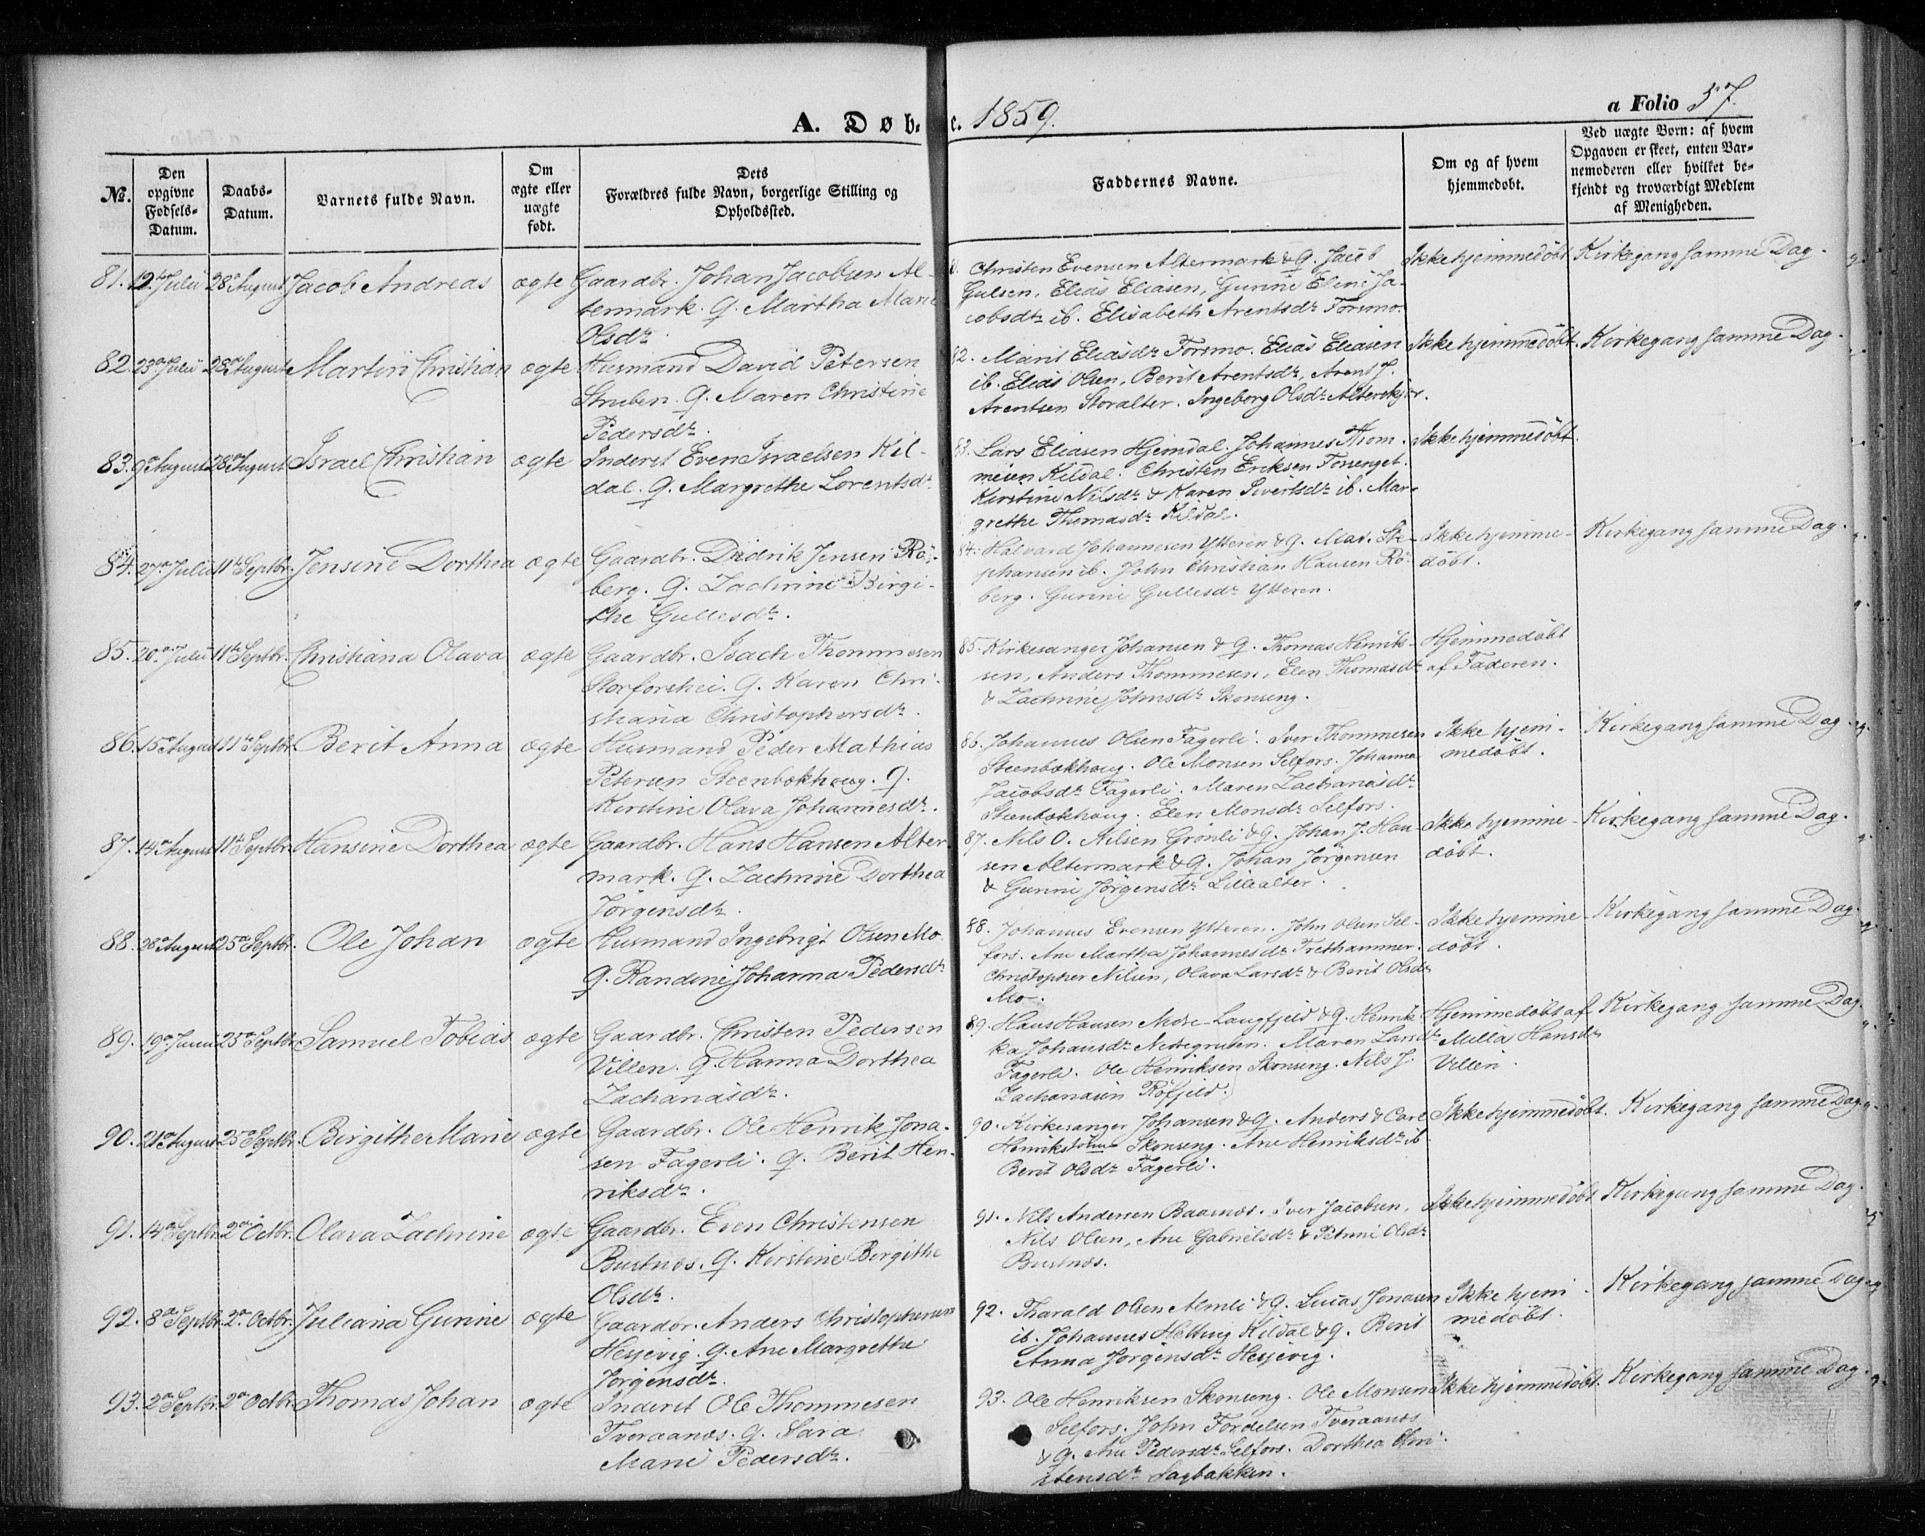 A. Døb- e. 1859.
a Folio 57.
No.
Den opgivne Fødsels-Datum.
Daabs-Datum.
Barnets fulde Navn.
Om ægte eller uægte født.
Dets Forældres fulde Navn, borgerlige Stilling og Opholdssted.
Faddernes Navne.
Om og af hvem hjemmedøbt.
Ved uægte Børn: af hvem Opgaven er skeet, enten Barnemoderen eller hvilket bekjendt og troværdigt Medlem af Menigheden.
81. 12te Julii 28de August Jacob Andreas ægte Gaardbr. Johan Jacobsen Al-
termark. Q. Martha Marie
Olsdr.
Christen Evensen Altermark & Q. Jacob
Gulsen, Elias Eliasen, Gurine Eline Ja-
cobsdr ib. Elisabeth Arentsdr Forsmo.
Ikke hjemmedøbt Kirkegang samme Dag.
82. 23de Julii 28de August Martin Christian ægte Husmand David Petersen
Struben. Q. Maren Christine
Pedersdr.
82. Marit Eliasdr Forsmo. Elias Eliasen
ib. Elias Olsen, Berit Arentsdr, Arent J.
Arentsen Storalter. Ingeborg Olsdr Alterskjær.
Ikke hjemmedøbt. Kirkegang samme Dag.
83. 9de August 28de August Israel Christian ægte Inderst Even Israelsen Kil-
dal. Q. Margrethe Lorentsdr
83. Lars Eliasen Hjemdal. Johannes Thom-
mesen Kildal. Christen Eriksen Forrenget.
Kirstine Nilsdr & Karen Sivertsdr ib. Mar-
grethe Thomasdr Kildal.
Ikke hjemmedøbt.
84. 27de Julii 11te Septbr. Jensine Dorthea ægte Gaardbr. Didrik Jensen Rø-
berg. Q. Zachrine Birgi-
the Gullesdr.
84. Halvard Johannesen Ytteren & Q. Mar. Ste-
phansen ib. John Christian Hansen Rø-
berg. Gurine Gullesdr Ytteren.
Ikke hjemme-
døbt.
Kirkegang samme Dag.
85. 20de Julii 11te Septbr. Christiana Olava ægte Gaardbr. Isach Thommesen
Storforshei. Q. Karen Chri-
stiana Christophersdr.
85. Kirkesanger Johansen & Q. Thomas Henrik-
sen, Anders Thommesen, Elen Thomasdr
& Zachrine Johnsdr Skonseng.
Hjemmedøbt
af Faderen.
86. 15de August 11te Septbr. Berit Anna ægte Husmand Peder Mathias
Petersen Steenbækhaug. Q.
Kirstine Olava Johannesdr.
86. Johannes Olsen Fagerli. Iver Thommesen
Steenbækhaug. Ole Monsen Selfors. Johanna
Jacobsdr Fagerli. Maren Zachariasdr
Steenbækhaug. Elen Monsdr Selfors.
Ikke hjem-
medøbt.
Kirkegang samme Dag.
87. 14de August 11te Septbr. Hansine Dorthea ægte Gaardbr. Hans Hansen Alter-
mark. Q. Zachrine Dorthea
Jørgensdr.
87. Nils O. Nilsen Grønli & Q. Johan J. Han-
sen Altermark & Q. Johan Jørgensen
& Gurine Jørgensdr Lillealter.
Ikke hjemme-
døbt.
Kirkegang samme Dag.
88. 28de August 25de Septbr. Ole Johan ægte Husmand Ingebrigt Olsen Mo
Q. Randine Johanna Pedersdr
88. Johannes Evensen Ytteren. John Olsen Sel-
fors. Ane Martha Johannesdr Trethammer.
Christopher Nilsen, Olava Larsdr & Berit Olsdr
Mo.
Ikke hjemme-
døbt.
Kirkegang samme Dag.
89. 19de Junii 25de Septbr. Samuel Tobias ægte Gaardbr. Christen Pedersen
Villen. Q. Hanna Dorthea
Zachariasdr.
89. Hans Hansen Moe-Langfjeld & Q. Henrik-
ka Johansdr Nedregruben. Maren Larsdr
Fagerli. Ole Henriksen Skonseng. Nils J.
Zachariasen Røfjeld.
Hjemmedøbt af
Milla Hansdr
Villen.
Kirkegang samme Dag.
90. 21de August 25de Septbr. Birgithe Marie ægte Gaardbr. Ole Henrik Jona-
sen Fagerli. Q. Berit Hen-
riksdr.
90. Kirkesanger Johansen & Q. Anders & Carl
Skonseng. Ane Henriksdr ib
Berit Olsdr Fagerli.
Ikke hjemmedøbt. Kirkegang samme Dag.
91. 14de Septbr. 2den Octbr. Olava Zachrine ægte Gaardbr. Even Christensen
Bustnæs. Q. Kirstine Birgithe
Olsdr.
91. Nils Andersen Baasnæs. Iver Jacobsen,
Nils Olsen, Ane Gabrielsdr & Petrine Olsdr
Bustnæs.
Ikke hjemmedøbt Kirkegang samme Dag.
92. 8de Septbr. 2den Octbr. Juliana Gurine ægte Gaardbr. Anders Christophersen
Hesjevig. Q. Ane Margrethe
Jørgensdr.
92. Tharald Olsen Almli & Q. Lucas Jonasen
ib. Johannes Heltzig Kildal & Q. Berit
Anna Jørgensdr Hesjevig.
Ikke hjem-
medøbt.
Kirkegang samme Dag.
93. 2den Septbr. 2den Octbr. Thomas Johan ægte Inderst Ole Thommesen
Tveraanæs. Q. Sara
Marie Pedersdr.
93. Ole Henriksen Skonseng. Ole Monsen
Selfors. John Fordelsen Tveraanæs
& Q. Ane Pedersdr Selfors. Dorthea Chri-
stensdr Sagbakken.
Ikke hjemmedøbt. Kirkegang samme Dag.